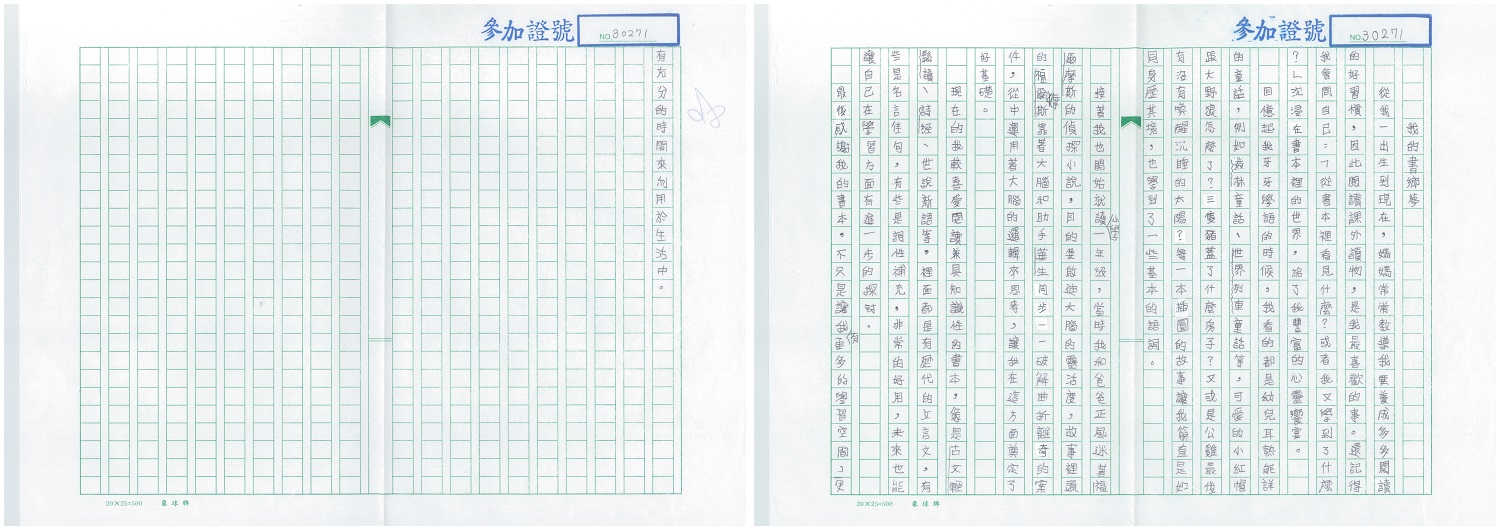 參加證號
NO. 30271
我的書鄉夢
從我一出生到現在，媽媽常常教導我要養成多多閱讀
的好習慣，因此閱讀課外讀物，是我最喜歡的事。還記得
我會問自己：「從書本裡看見什麼？或者我又學到了什麼
？」沉浸在書本裡的世界，給了我豐富的心靈饗宴。
回憶起我牙牙學語的時候，我看的都是幼兒耳熟能詳
的童話，例如：格林童話、世界列車童話等，可愛的小紅帽
跟大野狼怎麼了？三隻豬蓋了什麼房子？又或是公雞最後
有沒有喚醒沉睡的太陽？每一本插圖的故事讓我簡直是如
同身歷其境，也學到了一些基本的語詞。
接著我也開始就讀小學一年級，當時我和爸爸正風迷著福
爾摩斯的偵探小說，目的要啟迪大腦的靈活度，故事裡頭
的福爾摩斯靠著大腦和助手華生同步一一破解曲折離奇的案
件，從中運用著大腦的邏輯來思考，讓我在這方面奠定了
好基礎。
現在的我較喜愛閱讀兼具知識性的書本，像是古文輕
鬆讀、詩經、世說新語等，裡面都是有歷代的文言文，有
些是名言佳句，有些是說性補充，非常的好用，未來也能
讓自己在學習方面有進一步的探討。
最後感謝我的書本，不只是讓我有更多的學習空間，更
20×25=500
象球牌
參加證號
NO. 30271
有充分的時間來利用於生活中。
20×25=500
象球牌